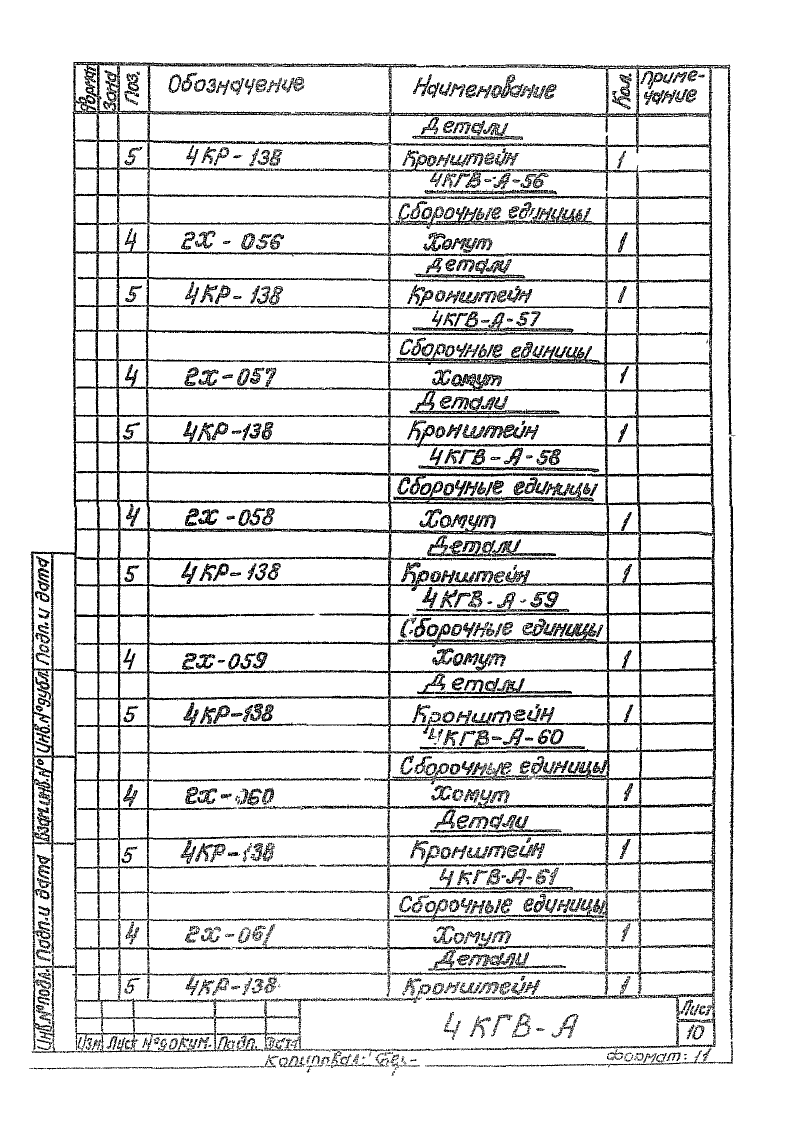 Формат Зона Поз. Обозначение Наименование Кол. Приме-
чание
Детали
5 4КР-138 Кронштейн 1
4КГВ-А-56
Сборочные единицы
4 2Х-056 Хомут 1
Детали
5 4КР-138 Кронштейн 1
4КГВ-А-57
Сборочные единицы
4 2Х-057 Хомут 1
Детали
5 4КР-138 Кронштейн 1
4КГВ-А-58
Сборочные единицы
4 2Х-058 Хомут 1
Детали
5 4КР-138 Кронштейн 1
4КГВ-А-59
Сборочные единицы
4 2Х-059 Хомут 1
Детали
5 4КР-138 Кронштейн 1
4КГВ-А-60
Сборочные единицы
4 2Х-060 Хомут 1
Детали
5 4КР-138 Кронштейн 1
4КГВ-А-61
Сборочные единицы
4 2Х-061 Хомут 1
Детали
5 4КР-138 Кронштейн 1
Инв.№подл. Подп.и дата Взам.инв.№ Инв.№дубл. Подп.и дата
Изм Лист №докум. Подп. Дата
4КГВ-А
Лист
10
Копировал: формат: 11